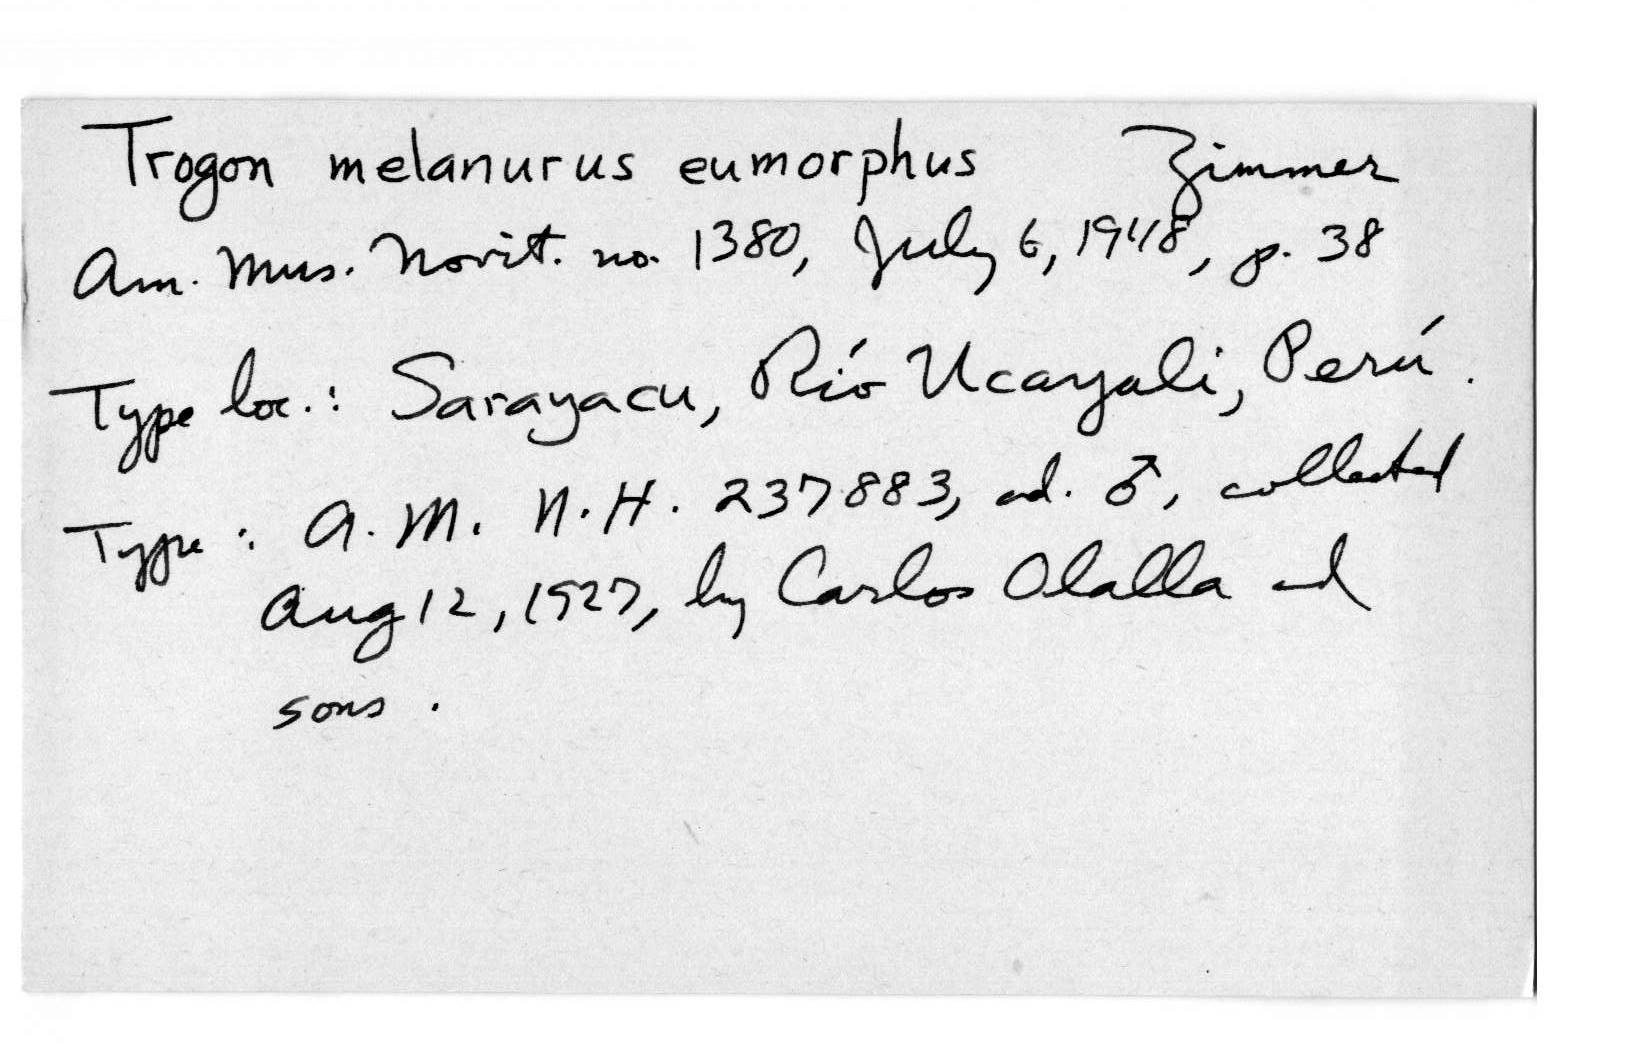 Trogon melanurus eumorphus Zimmer
Am. Mus. Novit. no. 1380, July 6, 1948, p. 38
Type loc.: Sarayacu, Río Ucayali, Perú.
Type: A. M. N. H. 237883, ad. ♂, collected
Aug 12, 1927, by Carlos Olalla and
sons.